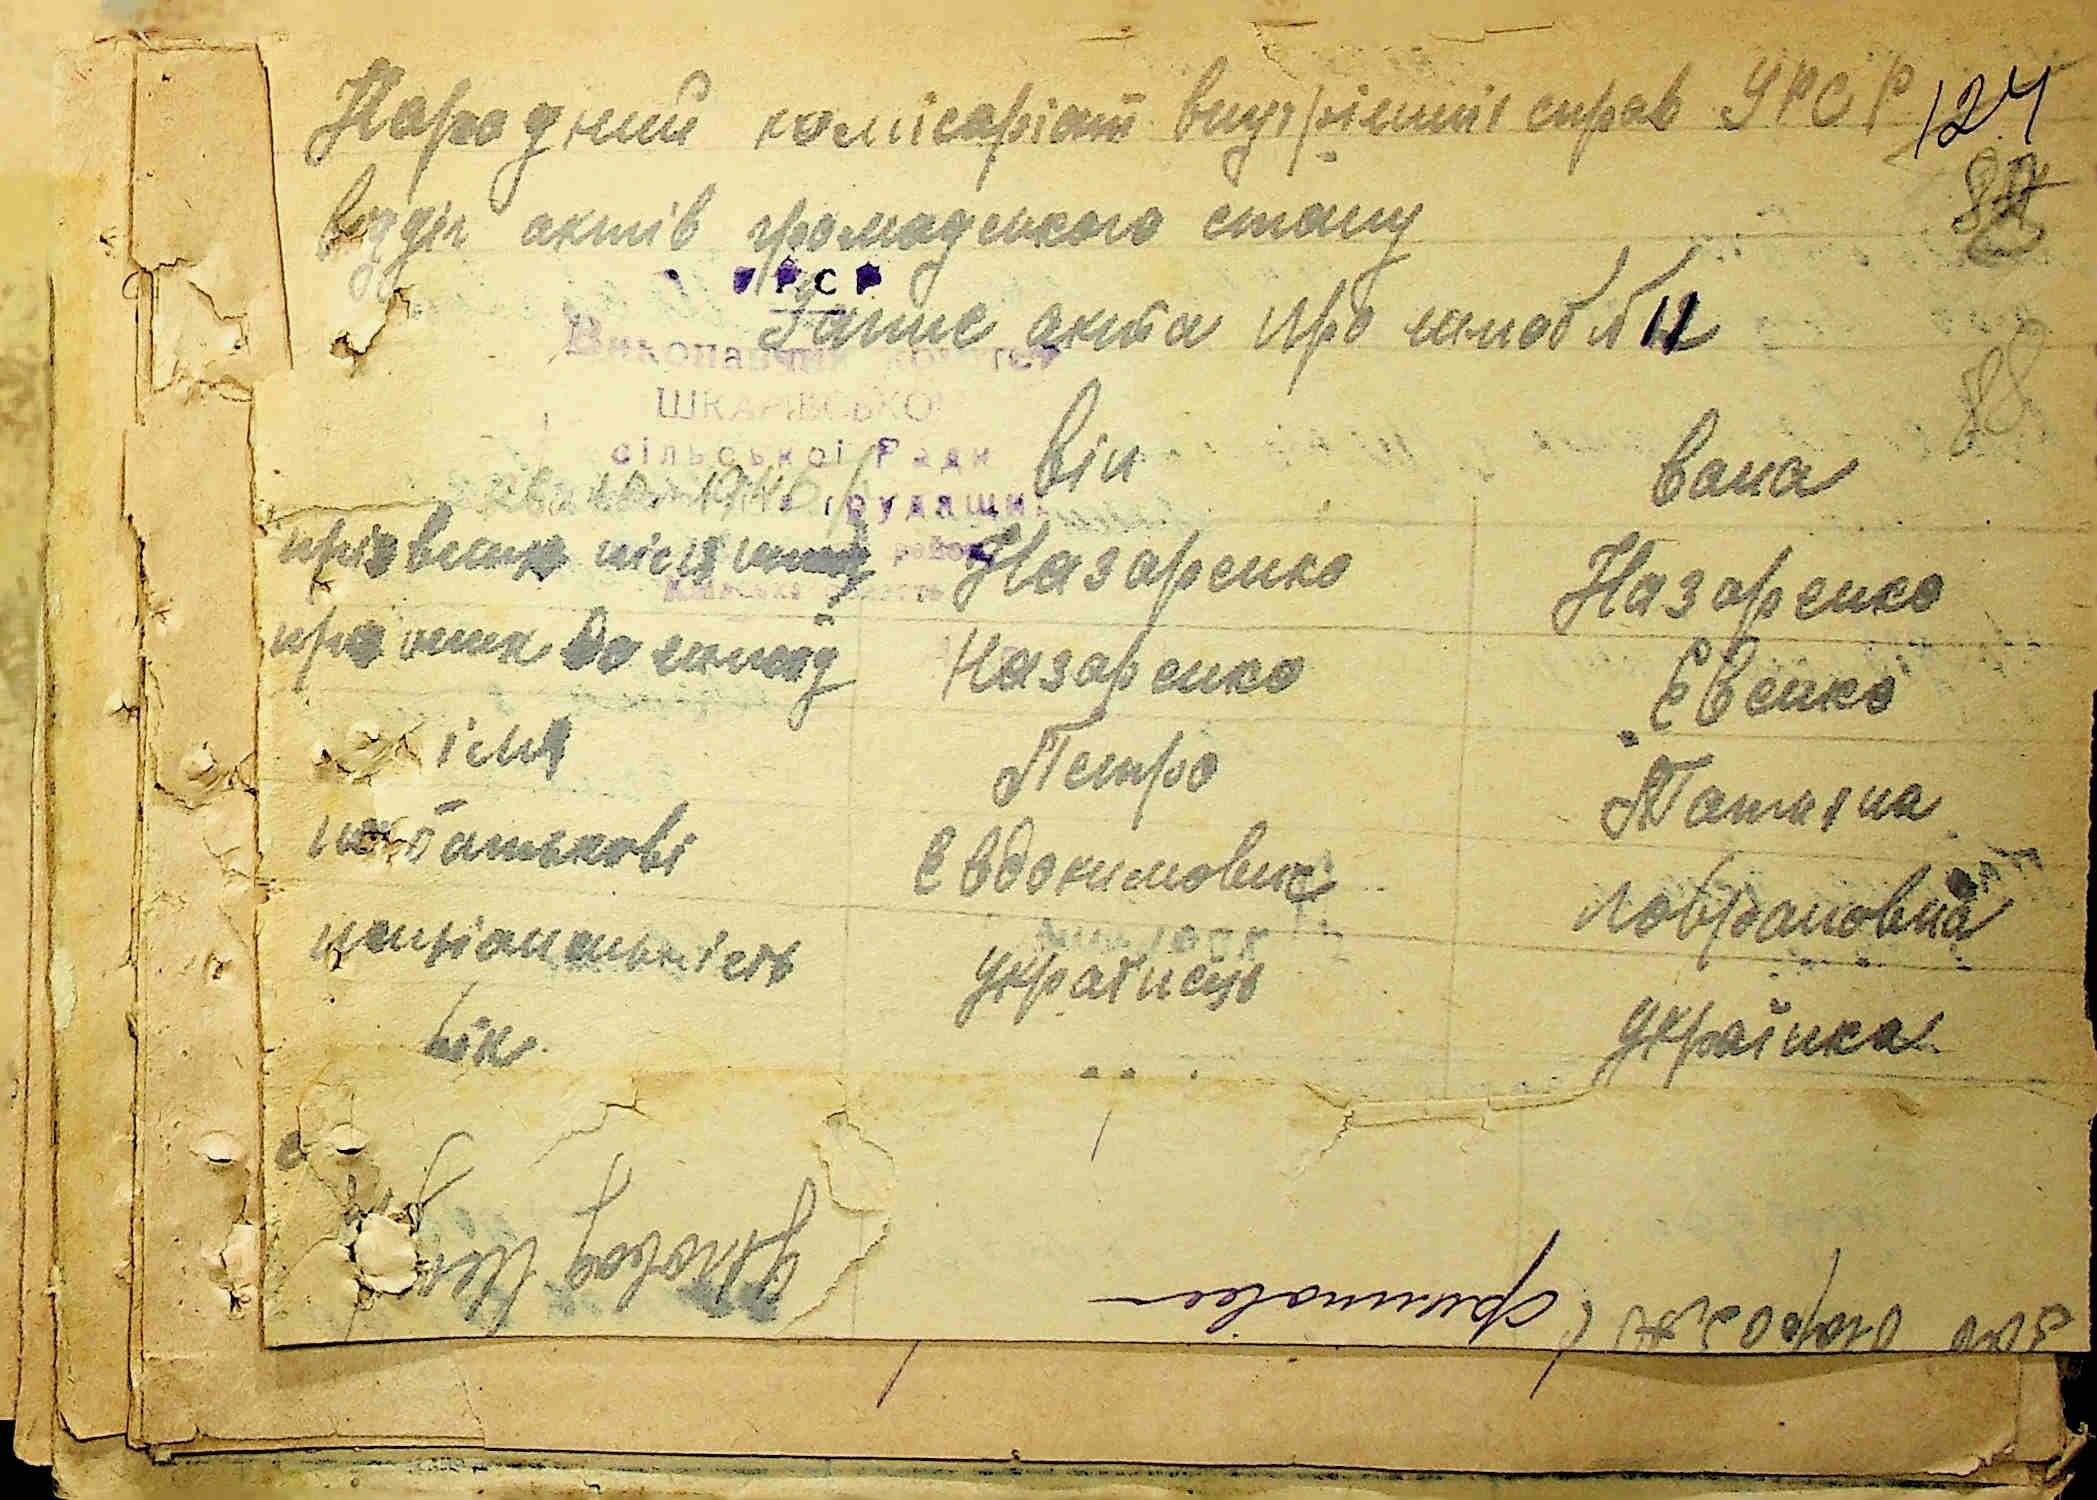 Народний комісаріат внутрішніх справ УРСР 124
відділ актів громадського стану
УРСР
Запис акта про шлюб № 11
Виконавчий комітет
ШКАРІВСЬКОЇ
сільської Ради
88
Він Вона
трудящих
прізвище після шлюбу Назаренко Назаренко
району
Київська область
прізвище до шлюбу Назаренко Євенко
імя Петро Татяна
по батькові Євдокимович
національність українець українка
вік